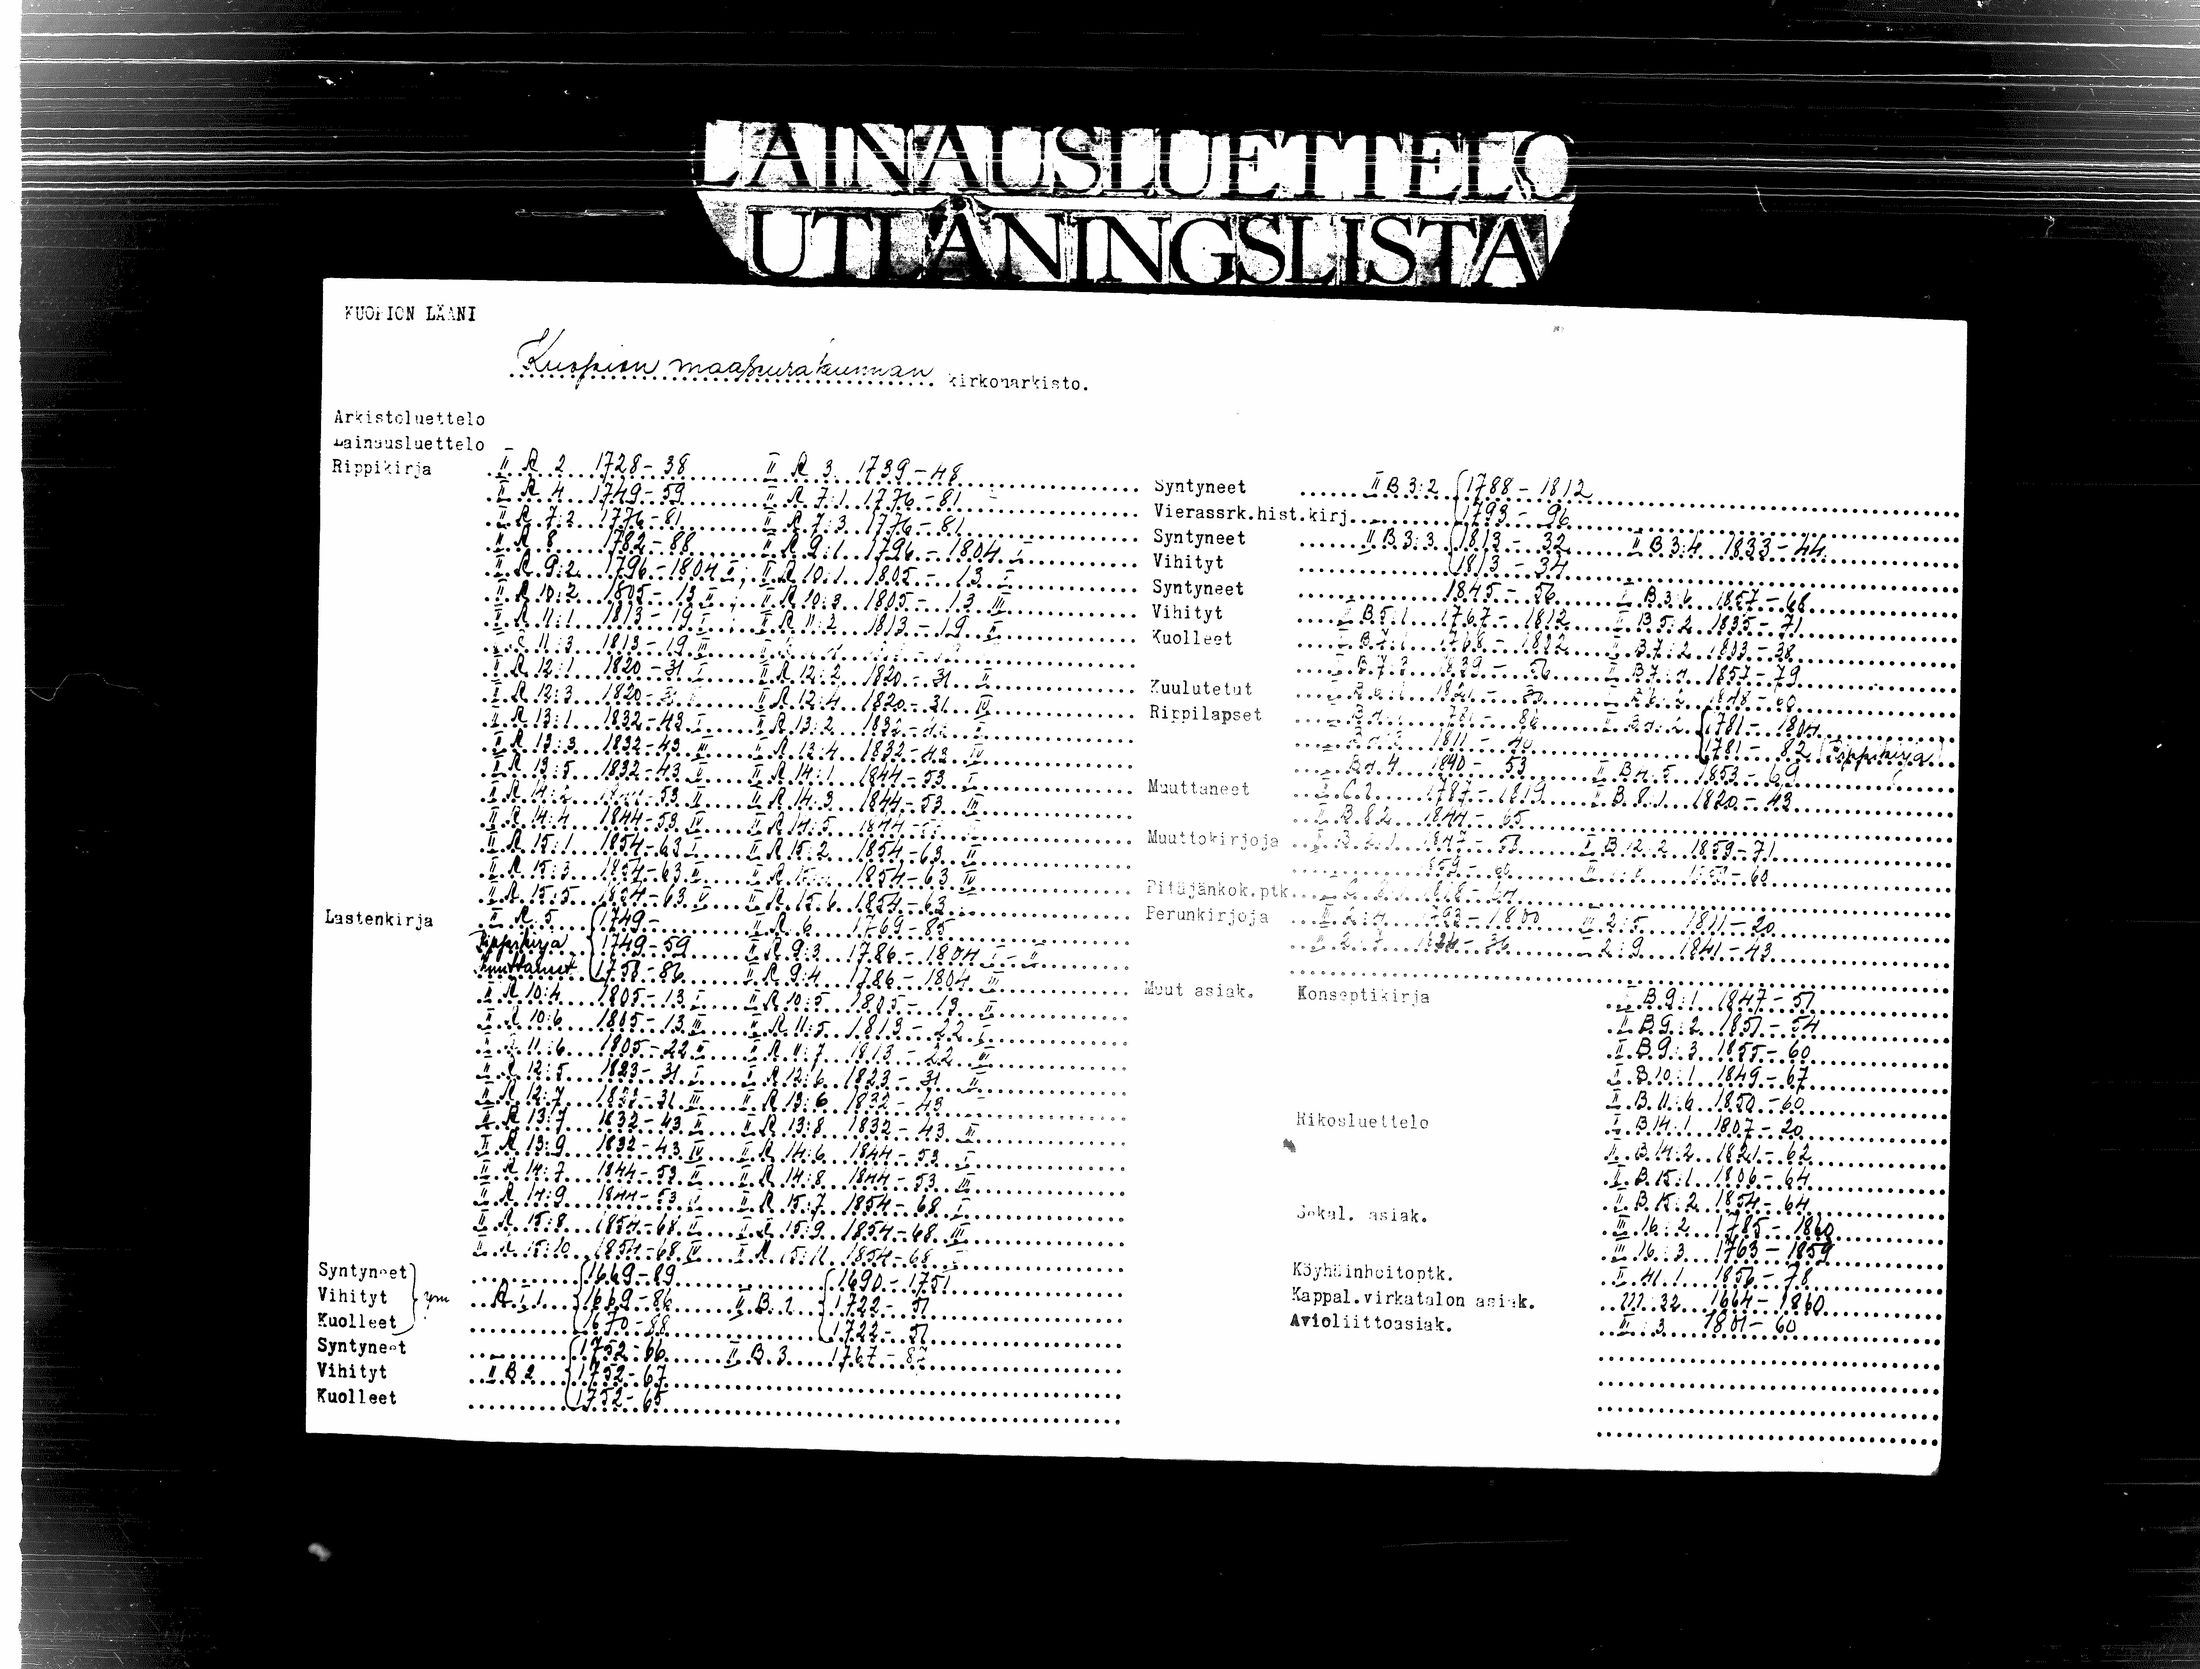 LAINAUSLUETTELO
UTLÅNINGSLISTA
KUOPION LÄÄNI
Kuopion maaseurakunnan kirkonarkisto.
Arkistoluettelo
Lainausluettelo
Rippikirja II A 2 1728-38 II A 3 1739-48
II A 4 1749-59 II A 7:1 1776-81
II A 7:2 1776-81 II A 7:3 1776-81
II A 8 1782-88 II A 9:1 1796-1804 I
II A 9:2 1796-1804 II II A 10:1 1805-13 I
II A 10:2 1805-13 II II A 10:3 1805-13 III
II A 11:1 1813-19 I II A 11:2 1813-19 II
11:3 1813-19 III
II A 12:1 1820-31 I II A 12:2 1820-31 II
II A 12:3 1820-31 II A 12:4 1820-31 IV
II A 13:1 1832-43 I II A 13:2 1832-43 II
II A 13:3 1832-43 III II A 13:4 1832-43 IV
II A 13:5 1832-43 V II A 14:1 1844-53 I
II A 14:2 -53 II II A 14:3 1844-53 III
II A 14:4 1844-53 IV II A 14:5 1844-
II A 15:1 1854-63 I II A 15:2 1854-63 II
II A 15:3 1854-63 II A 1854-63 IV
II A 15:5 1854-63 V II A 15:6 1854-63
Lastenkirja II A 5 1749- II A 6 1769-85
Rippikirja 1749-59 II A 9:3 1786-1804 I-II
Muuttaneet 1758-86 II A 9:4 1786-1804 III
II A 10:4 1805-13 I II A 10:5 1805-13 II
II A 10:6 1805-13 III II A 11:5 1813-22 I
11:6 1805-22 II II A 11:7 1813-22 III
II A 12:5 1823-31 I II A 12:6 1823-31 II
II A 12:7 1823-31 III II A 13:6 1832-43
II A 13:7 1832-43 II II A 13:8 1832-43 III
II A 13:9 1832-43 IV II A 14:6 1844-53 I
II A 14:7 1844-53 II II A 14:8 1844-53 III
II A 14:9 1844-53 II A 15:7 1854-68 I
II A 15:8 1854-68 II 15:9 1854-68 III
II A 15:10 1854-68 IV II A 15:11 1854-68
Syntyneet 1669-89 1690-1751
Vihityt ym A I 1 1669-86 II B 1 1722-51
Kuolleet 1670-88 1722-51
Syntyneet 1752-66 II B 3 1767-87
Vihityt II B 2 1752-67
Kuolleet 1752-65
Syntyneet II B 3:2 1788-1812
Vierassrk.hist.kirj. 1793-96
Syntyneet II B 3:3 1813-32 II B 3:4 1833-44
Vihityt 1813-34
Syntyneet 1845-56 II B 3:6 1857-68
Vihityt II B 5:1 1767-1812 II B 5:2 1835-71
Kuolleet II B 7:1 1768-1802 B 7:2 1803-38
B 7:3 1839-56 II B 7:4 1857-79
Kuulutetut
Rippilapset 1781-1804
1811-40 1781-82 (Rippikirja)
B 4:4 1840-53 II B 4:5 1853-69
Muuttaneet II C 1 1787-1819 II B 8:1 1820-43
II B 8:2 1844-65
Muuttokirjoja 1847-53 II B 12:2 1859-71
Pitäjänkok.ptk.
Perunkirjoja III 2:4 1793-1800 III 2:5 1811-20
2:7 2:9 1841-43
Muut asiak. Konseptikirja II B 9:1 1847-51
II B 9:2 1851-54
II B 9:3 1855-60
II B 10:1 1849-67
II B 11:6 1850-60
Rikosluettelo II B 14:1 1807-20
II B 14:2 1821-62
II B 15:1 1806-64
II B 15:2 1854-64
Sekal. asiak. III 16:2 1785-1860
III 16:3 1763-1859
Köyhäinhoitoptk. II 41:1 1856-78
Kappal.virkatalon asiak. III 32 1664-1860
Avioliittoasiak. 3 1801-60